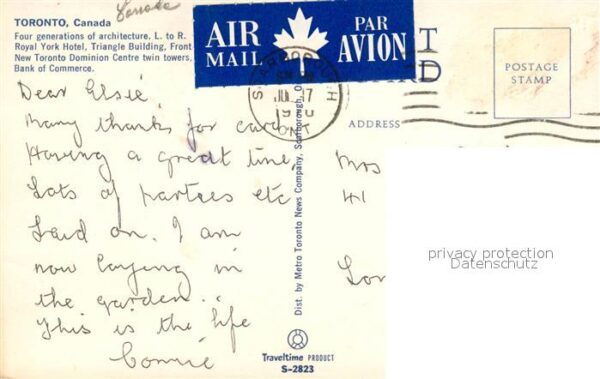 Canada
TORONTO, Canada
Four generations of architecture. L. to R.
Royal York Hotel, Triangle Building, Front-
New Toronto Dominion Centre twin towers,
Bank of Commerce.
AIR MAIL
PAR AVION
T
RD
POSTAGE STAMP
SCARBOROUGH
JUL 17
ONT
ADDRESS
Dear Elsie
Many thanks for card
Having a great time,
Lots of parties etc
Laid on. I am
now laying in
the garden..
This is the life
Connie
Mrs
41
Lon
privacy protection
Datenschutz
Dist. by Metro Toronto News Company, Scarborough, O
Traveltime PRODUCT
S-2823